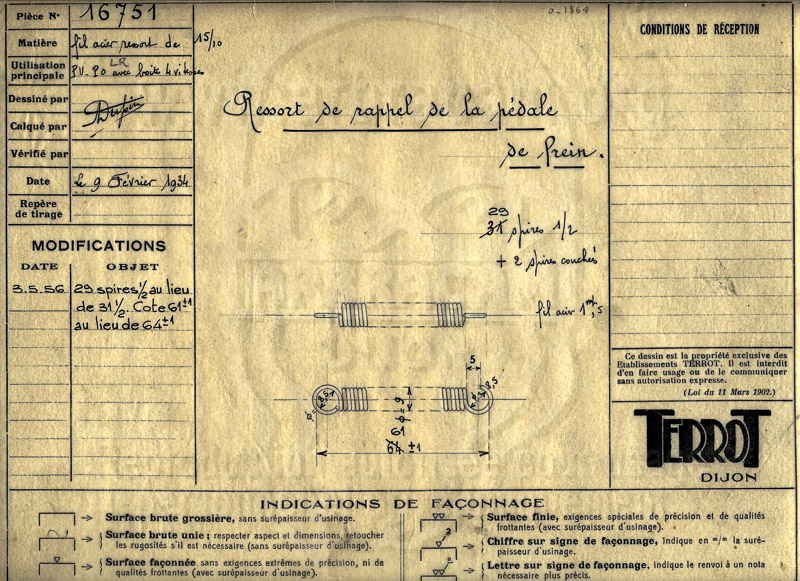 Pièce No 16751
Matière fil acier ressort de 15/10
Utilisation principale PU. PO LR avec boite 4 vitesses
Dessiné par
Calqué par
Vérifié par
Date Le 9 Février 1934
Repère de tirage
MODIFICATIONS
DATE OBJET
3.5.56 29 spires 1/2 au lieu
de 31 1/2. Cote 61±1
au lieu de 64±1
0-1864
Ressort de rappel de la pédale
de frein.
29
31 spires 1/2
+ 2 spires couchées
fil acier 1m/m,5
5
8,5
8,5
φ=9
61
64 ±1
CONDITIONS DE RÉCEPTION
Ce dessin est la propriété exclusive des
Etablissements TERROT. Il est interdit
d'en faire usage ou de le communiquer
sans autorisation expresse.
(Loi du 11 Mars 1902.)
TERROT
DIJON
INDICATIONS DE FAÇONNAGE
Surface brute grossière, sans surépaisseur d'usinage.
Surface brute unie; respecter aspect et dimensions, retoucher
les rugosités s'il est nécessaire (sans surépaisseur d'usinage).
Surface façonnée sans exigences extrêmes de précision, ni de
qualités frottantes (avec surépaisseur d'usinage).
Surface finie, exigences spéciales de précision et de qualités
frottantes (avec surépaisseur d'usinage).
Chiffre sur signe de façonnage, indique en m/m la suré-
paisseur d'usinage.
Lettre sur signe de façonnage, indique le renvoi à un nota
nécessaire plus précis.